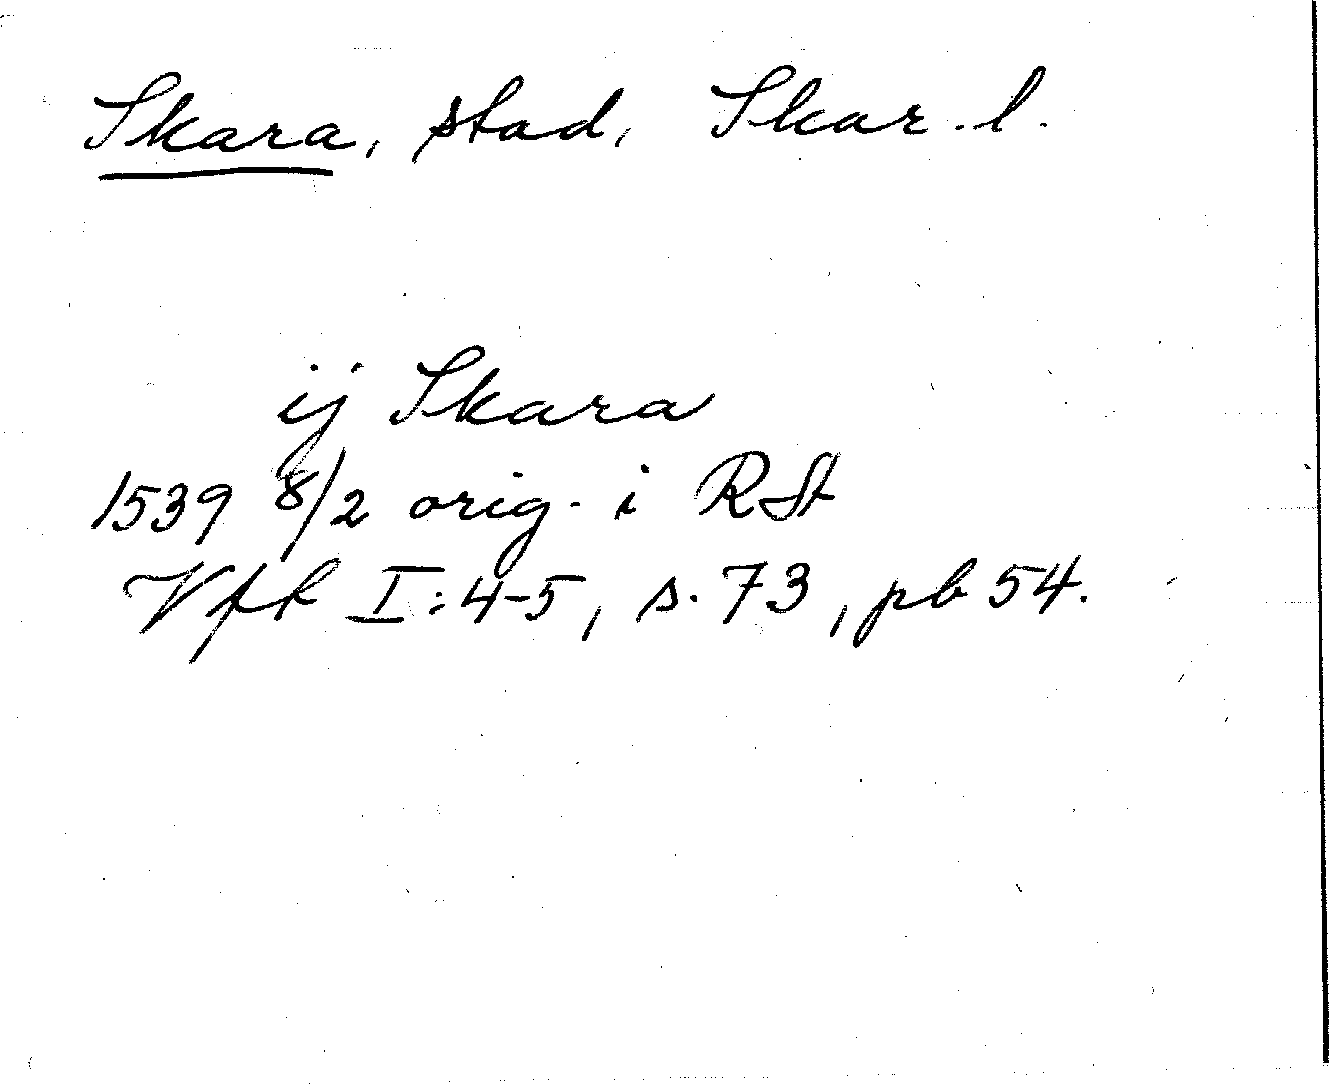 Skara, stad, Skar. l.
ij Skara
1539 8/2 orig. i RSt
Vft I:4-5, s. 73, pb 54.